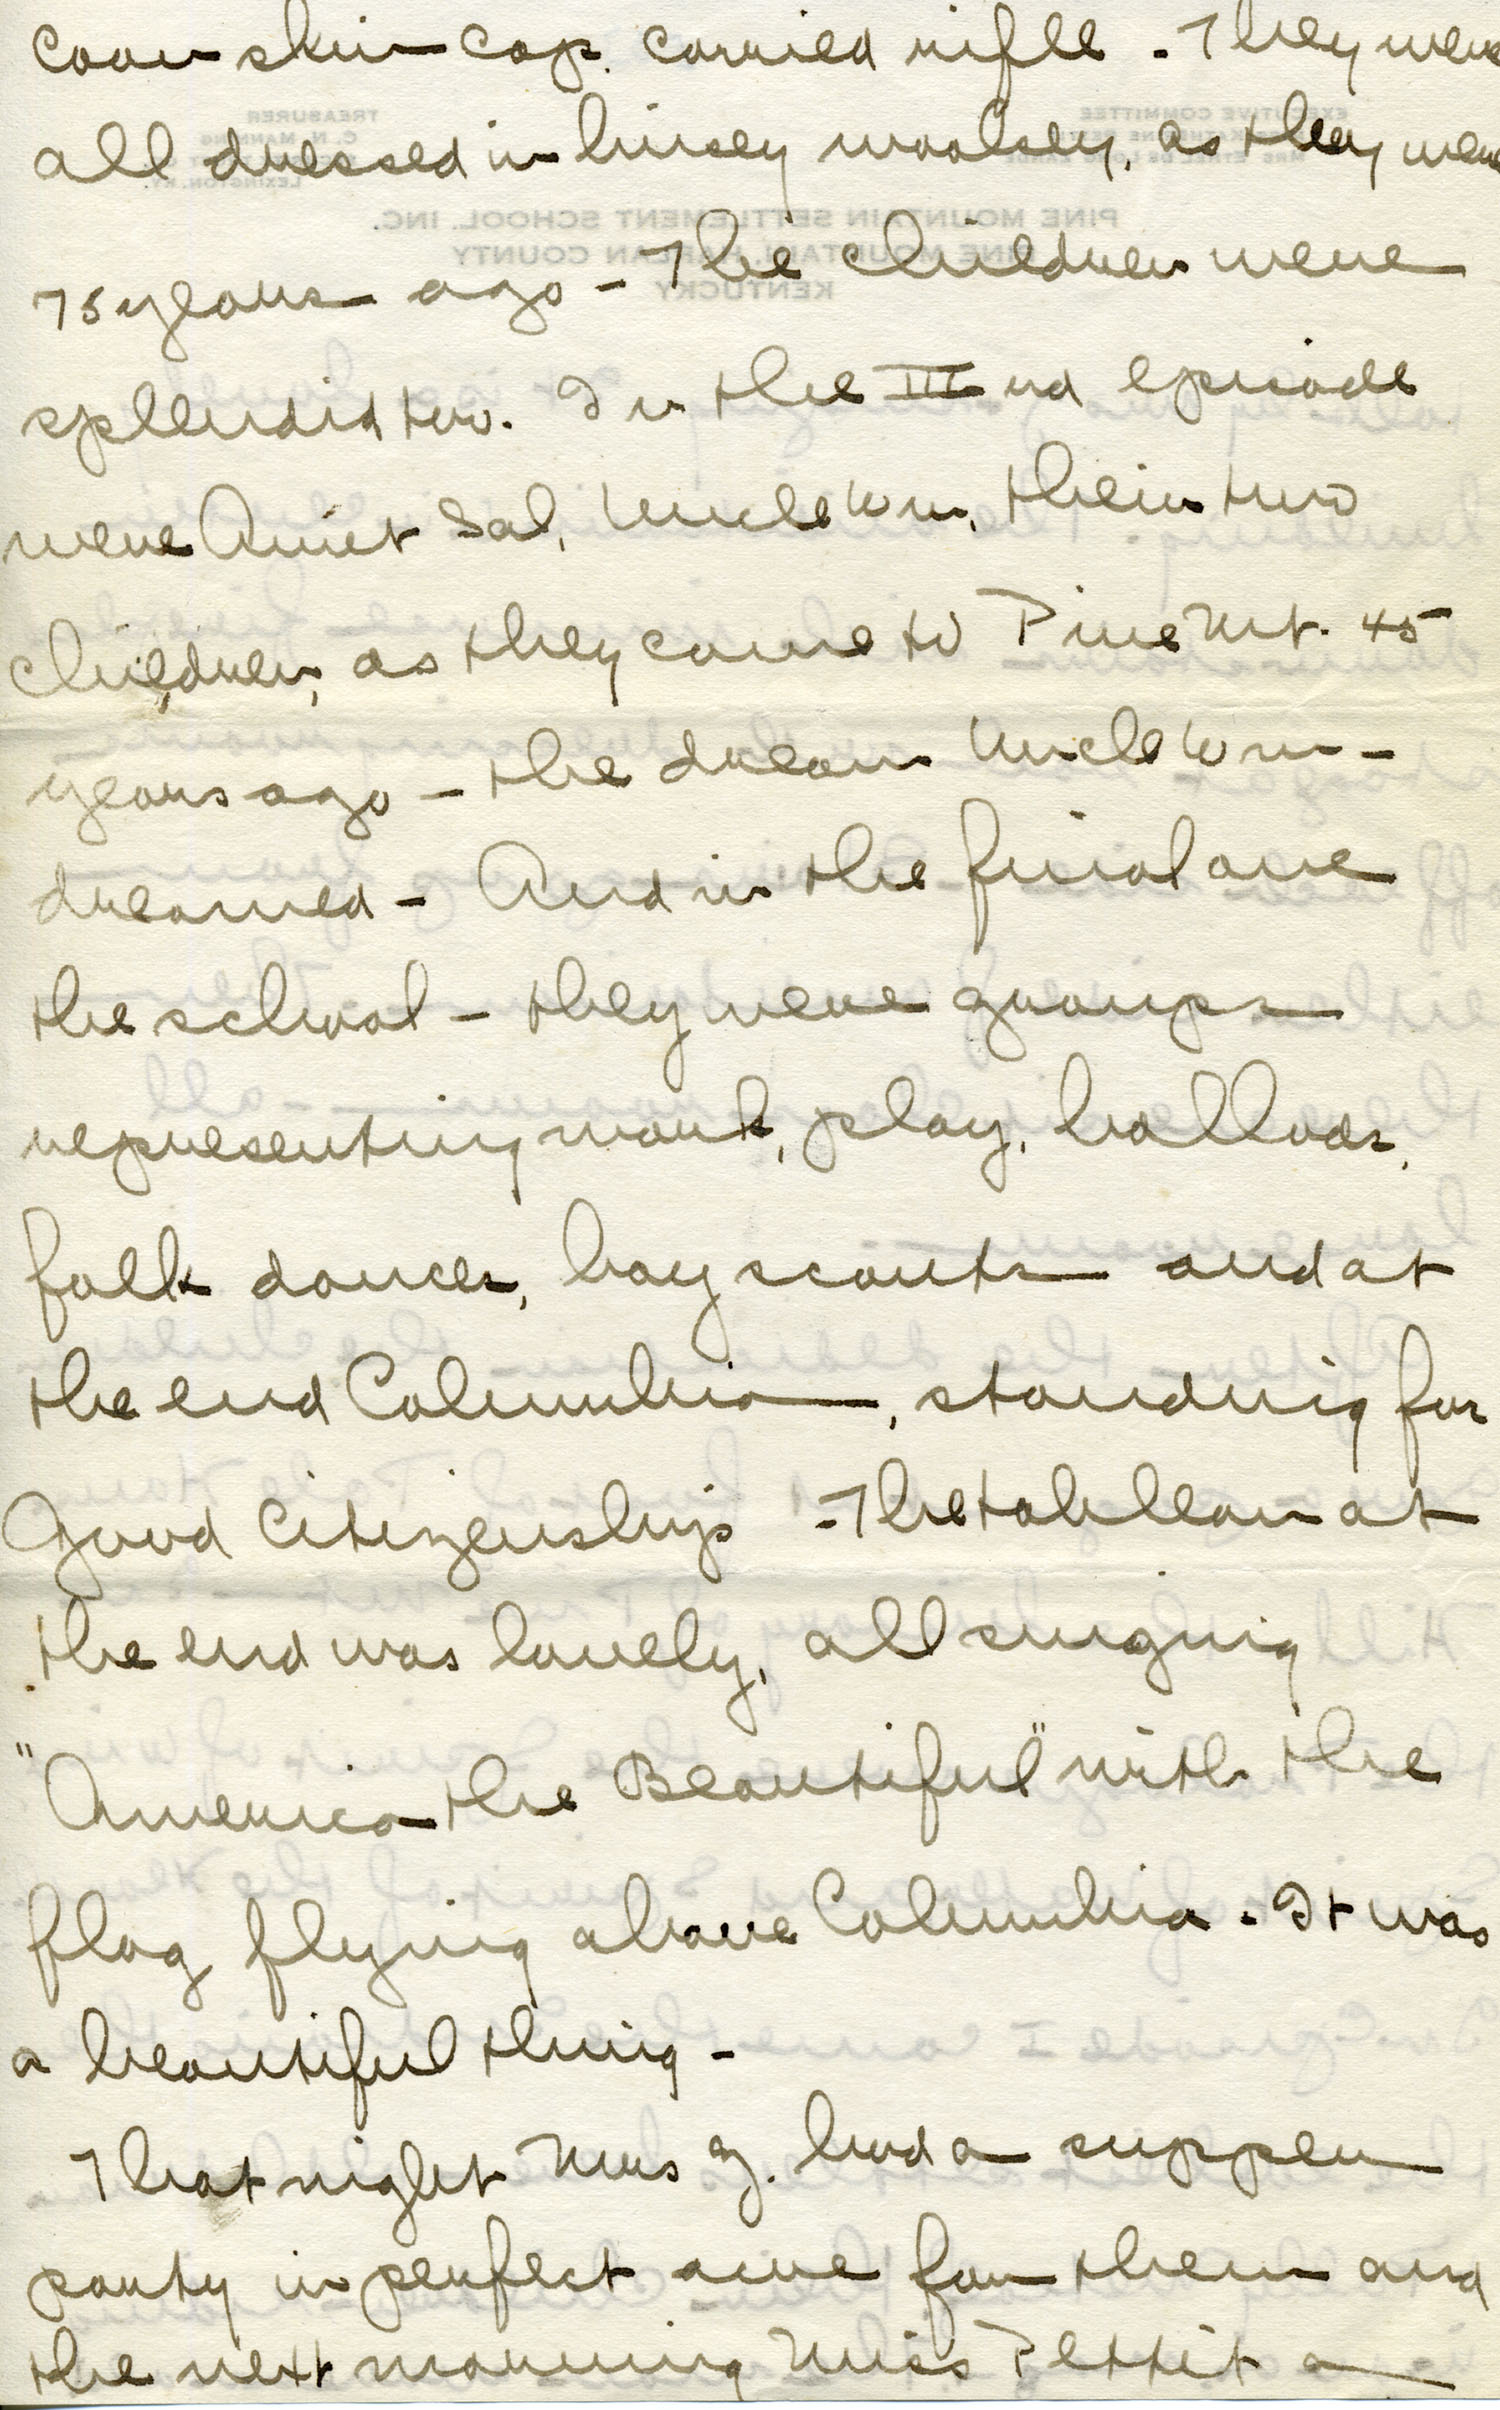 Coon skin cap. carried rifle - They were
all dressed in linsey woolsey, as they were
75 years ago - The children were
splendid too. In the III rd episode
were Aunt Sal, Uncle Wm, their two
children, as they came to Pine Mt. 45
years ago - the dream Uncle Wm -
dreamed - And in the final one
the school - they were groups
representing work, play, ballads,
folk dances, boy scouts and at
the end Columbia, standing for
Good Citizenship - The tableau at
the end was lovely, all singing
"America the Beautiful" with the
flag flying above Columbia - It was
a beautiful thing -
That night Mrs Z. had a supper
party in perfect awe for them and
the next morning Miss Pettit a
EXECUTIVE COMMITTEE
TREASURER
C. N. MANNING
LEXINGTON, KY.
PINE MOUNTAIN SETTLEMENT SCHOOL. INC.
PINE MOUNTAIN, HARLAN COUNTY
KENTUCKY